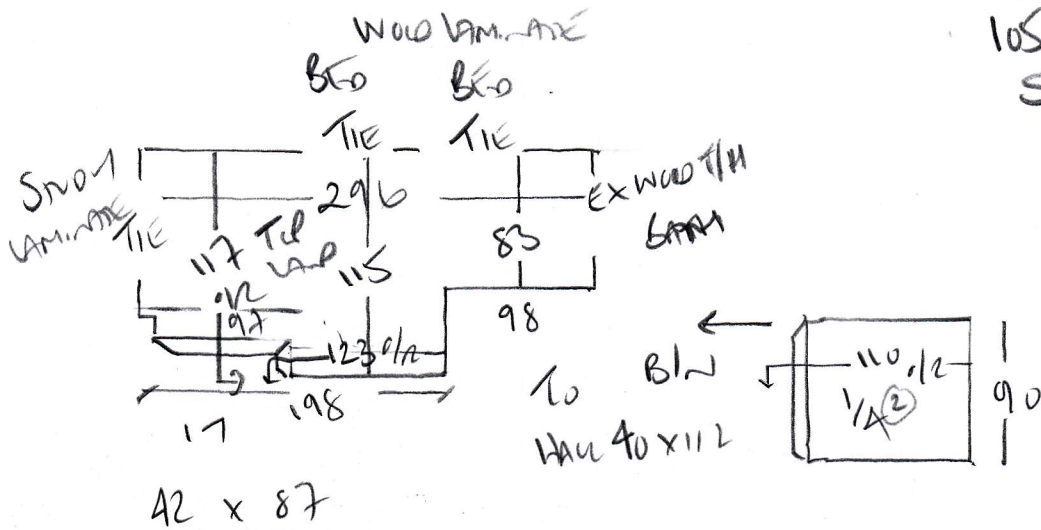 WOOD LAMINATE
105
S
BED BED
TIE TIE
LAMINATE
TIE
296
EX WOOD T/H
117
115
83
.12
97
98
123 0/2
198
17
TO B/W
HALL 40 X 112
110 .12
1/4 2
90
42 x 87